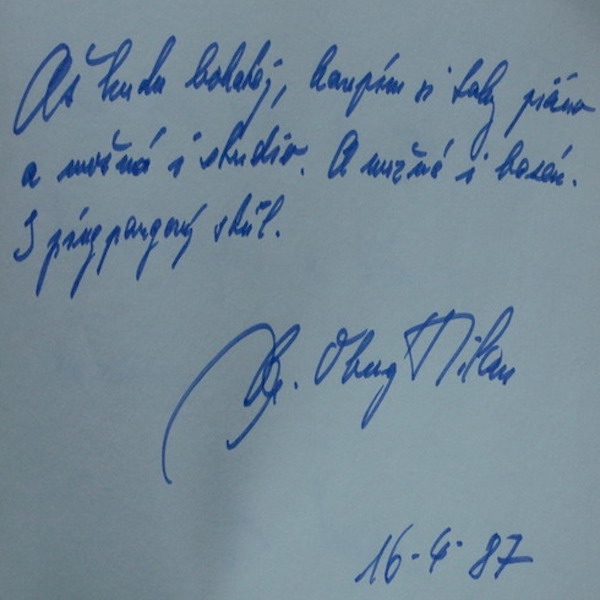 Až budu bohatej, koupím si taky piáno
a možná i studio. A možná i bazén.
I pingpongový stůl.
Milan
16-4-87